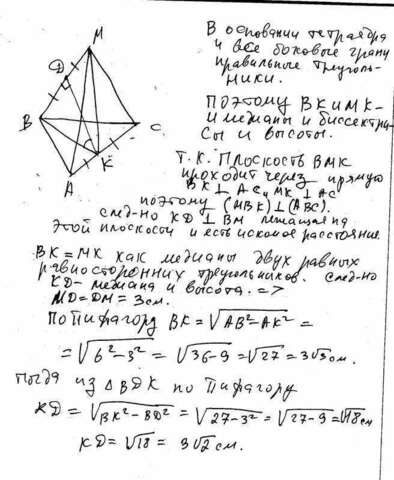 M
D
B
C
K
A
В основании тетраэдра
и все боковые грани
правильные треуголь-
ники.
Поэтому BK и MK-
и медианы и биссектри-
сы и высоты.
Т.К. Плоскость BMK
проходит через прямую
BK ⊥ AC, MK ⊥ AC
поэтому (MBK) ⊥ (ABC).
след-но KD ⊥ BM лежащая на
этой плоскости и есть искомое расстояние
BK = MK как медианы двух равных
равносторонних треугольников. след-но
KD- медиана и высота. =>
MD = DM = 3см.
По Пифагору BK = √AB²-AK² =
= √6²-3² = √36-9 = √27 = 3√3 см.
Тогда из △BDK по Пифагору
KD = √BK²-BD² = √27-3² = √27-9 = √18 см
KD = √18 = 3√2 см.